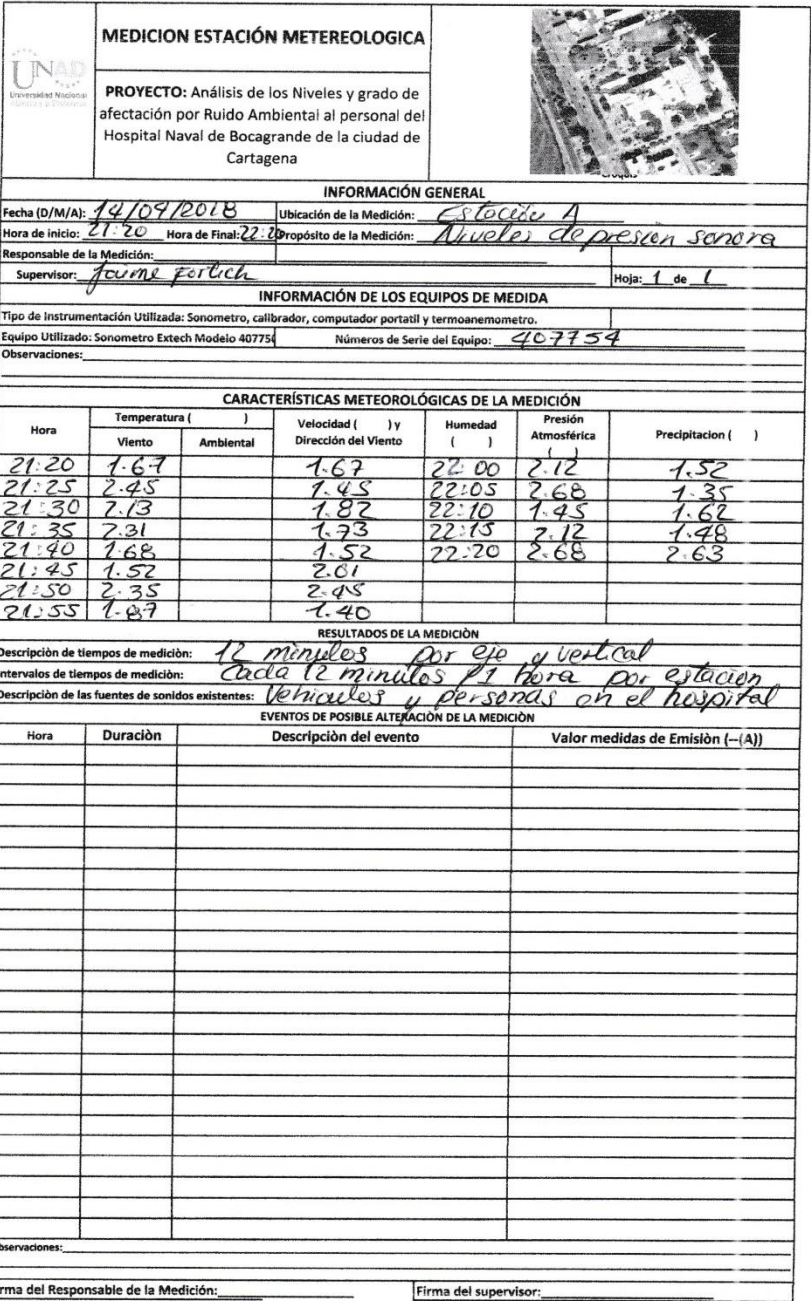 MEDICION ESTACIÓN METEREOLOGICA
UNAD
Universidad Nacional
Abierta y a Distancia
PROYECTO: Análisis de los Niveles y grado de
afectación por Ruido Ambiental al personal del
Hospital Naval de Bocagrande de la ciudad de
Cartagena
Croquis
INFORMACIÓN GENERAL
Fecha (D/M/A): 14/09/2018 Ubicación de la Medición: Estación A
Hora de inicio: 21:20 Hora de Final: 22:20 Propósito de la Medición: Niveles de presion sonora
Responsable de la Medición:
Supervisor: Hoja: 1 de 1
INFORMACIÓN DE LOS EQUIPOS DE MEDIDA
Tipo de Instrumentación Utilizada: Sonometro, calibrador, computador portatil y termoanemometro.
Equipo Utilizado: Sonometro Extech Modelo 40775 Números de Serie del Equipo: 407754
Observaciones:
CARACTERÍSTICAS METEOROLÓGICAS DE LA MEDICIÓN
Hora Temperatura ( ) Velocidad ( ) y Dirección del Viento Humedad ( ) Presión Atmosférica ( ) Precipitacion ( )
Viento Ambiental
21:20 1.67 1.67 22:00 2.12 1.52
21:25 2.45 1.45 22:05 2.68 1.35
21:30 2.13 1.82 22:10 1.45 1.62
21:35 2.31 1.73 22:15 2.12 1.48
21:40 1.68 1.52 22:20 2.68 2.63
21:45 1.52 2.01
21:50 2.35 2.45
21:55 1.87 1.40
RESULTADOS DE LA MEDICIÒN
Descripciòn de tiempos de mediciòn: 12 minutos por eje y vertical
ntervalos de tiempos de mediciòn: Cada 12 minutos 1 hora por estacion
Descripciòn de las fuentes de sonidos existentes: Vehiculos y personas en el hospital
EVENTOS DE POSIBLE ALTERACIÒN DE LA MEDICIÒN
Hora Duraciòn Descripciòn del evento Valor medidas de Emisiòn (--(A))
bservaciones:
rma del Responsable de la Medición: Firma del supervisor: